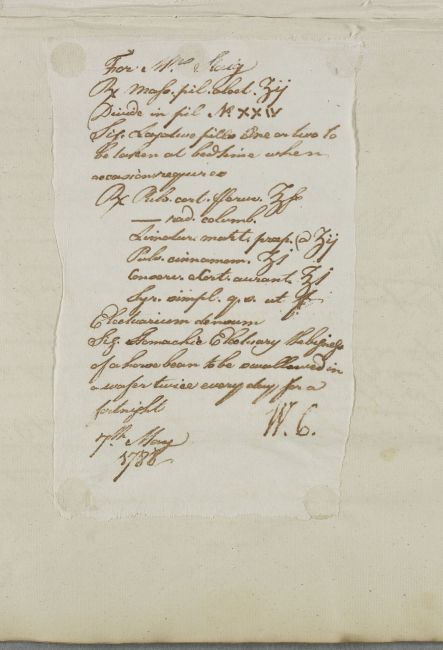 For Mrs
Rx Mass. pil. aloet. ʒij
Divide in pil No XXIV
Sig. Laxative pills One or two to
be taken at bedtime when
occasion requires
Rx Pulv. cort. Peruv. ℥ſs
— rad. columb.
Limatur. mart. prep. a ʒij
Pulv. cinnamom. ʒj
Conserv. cort. aurant. ℥j
Syr. simpl. q. s. ut ft
Electuarium densum
Sig. Stomachic Electuary the bigness
of a horse bean to be swallowed in
a wafer twice every day for a
fortnight
W. C.
7th. May